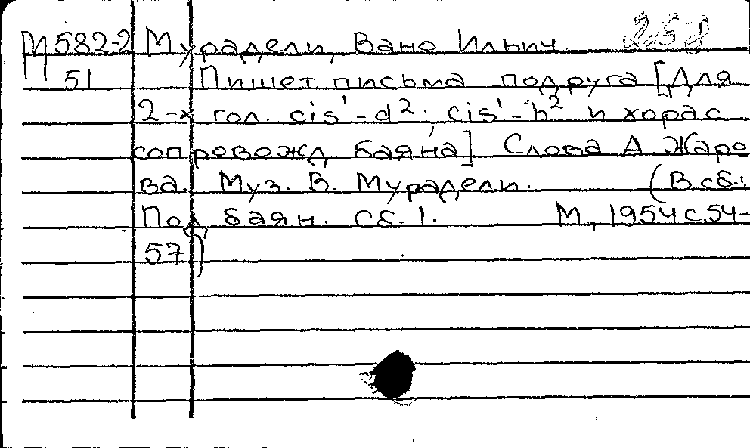 М582-2 Мурадели, Вано Ильич 258
51 Пишет письма подруга [Для
2-х гол. cis¹-d²; cis¹-h² и хора с
сопровожд. баяна] Слова А Жаро
ва. Муз. В. Мурадели. (В сб.:
Поd баян. Сб. 1. М., 1954 с.54-
57)